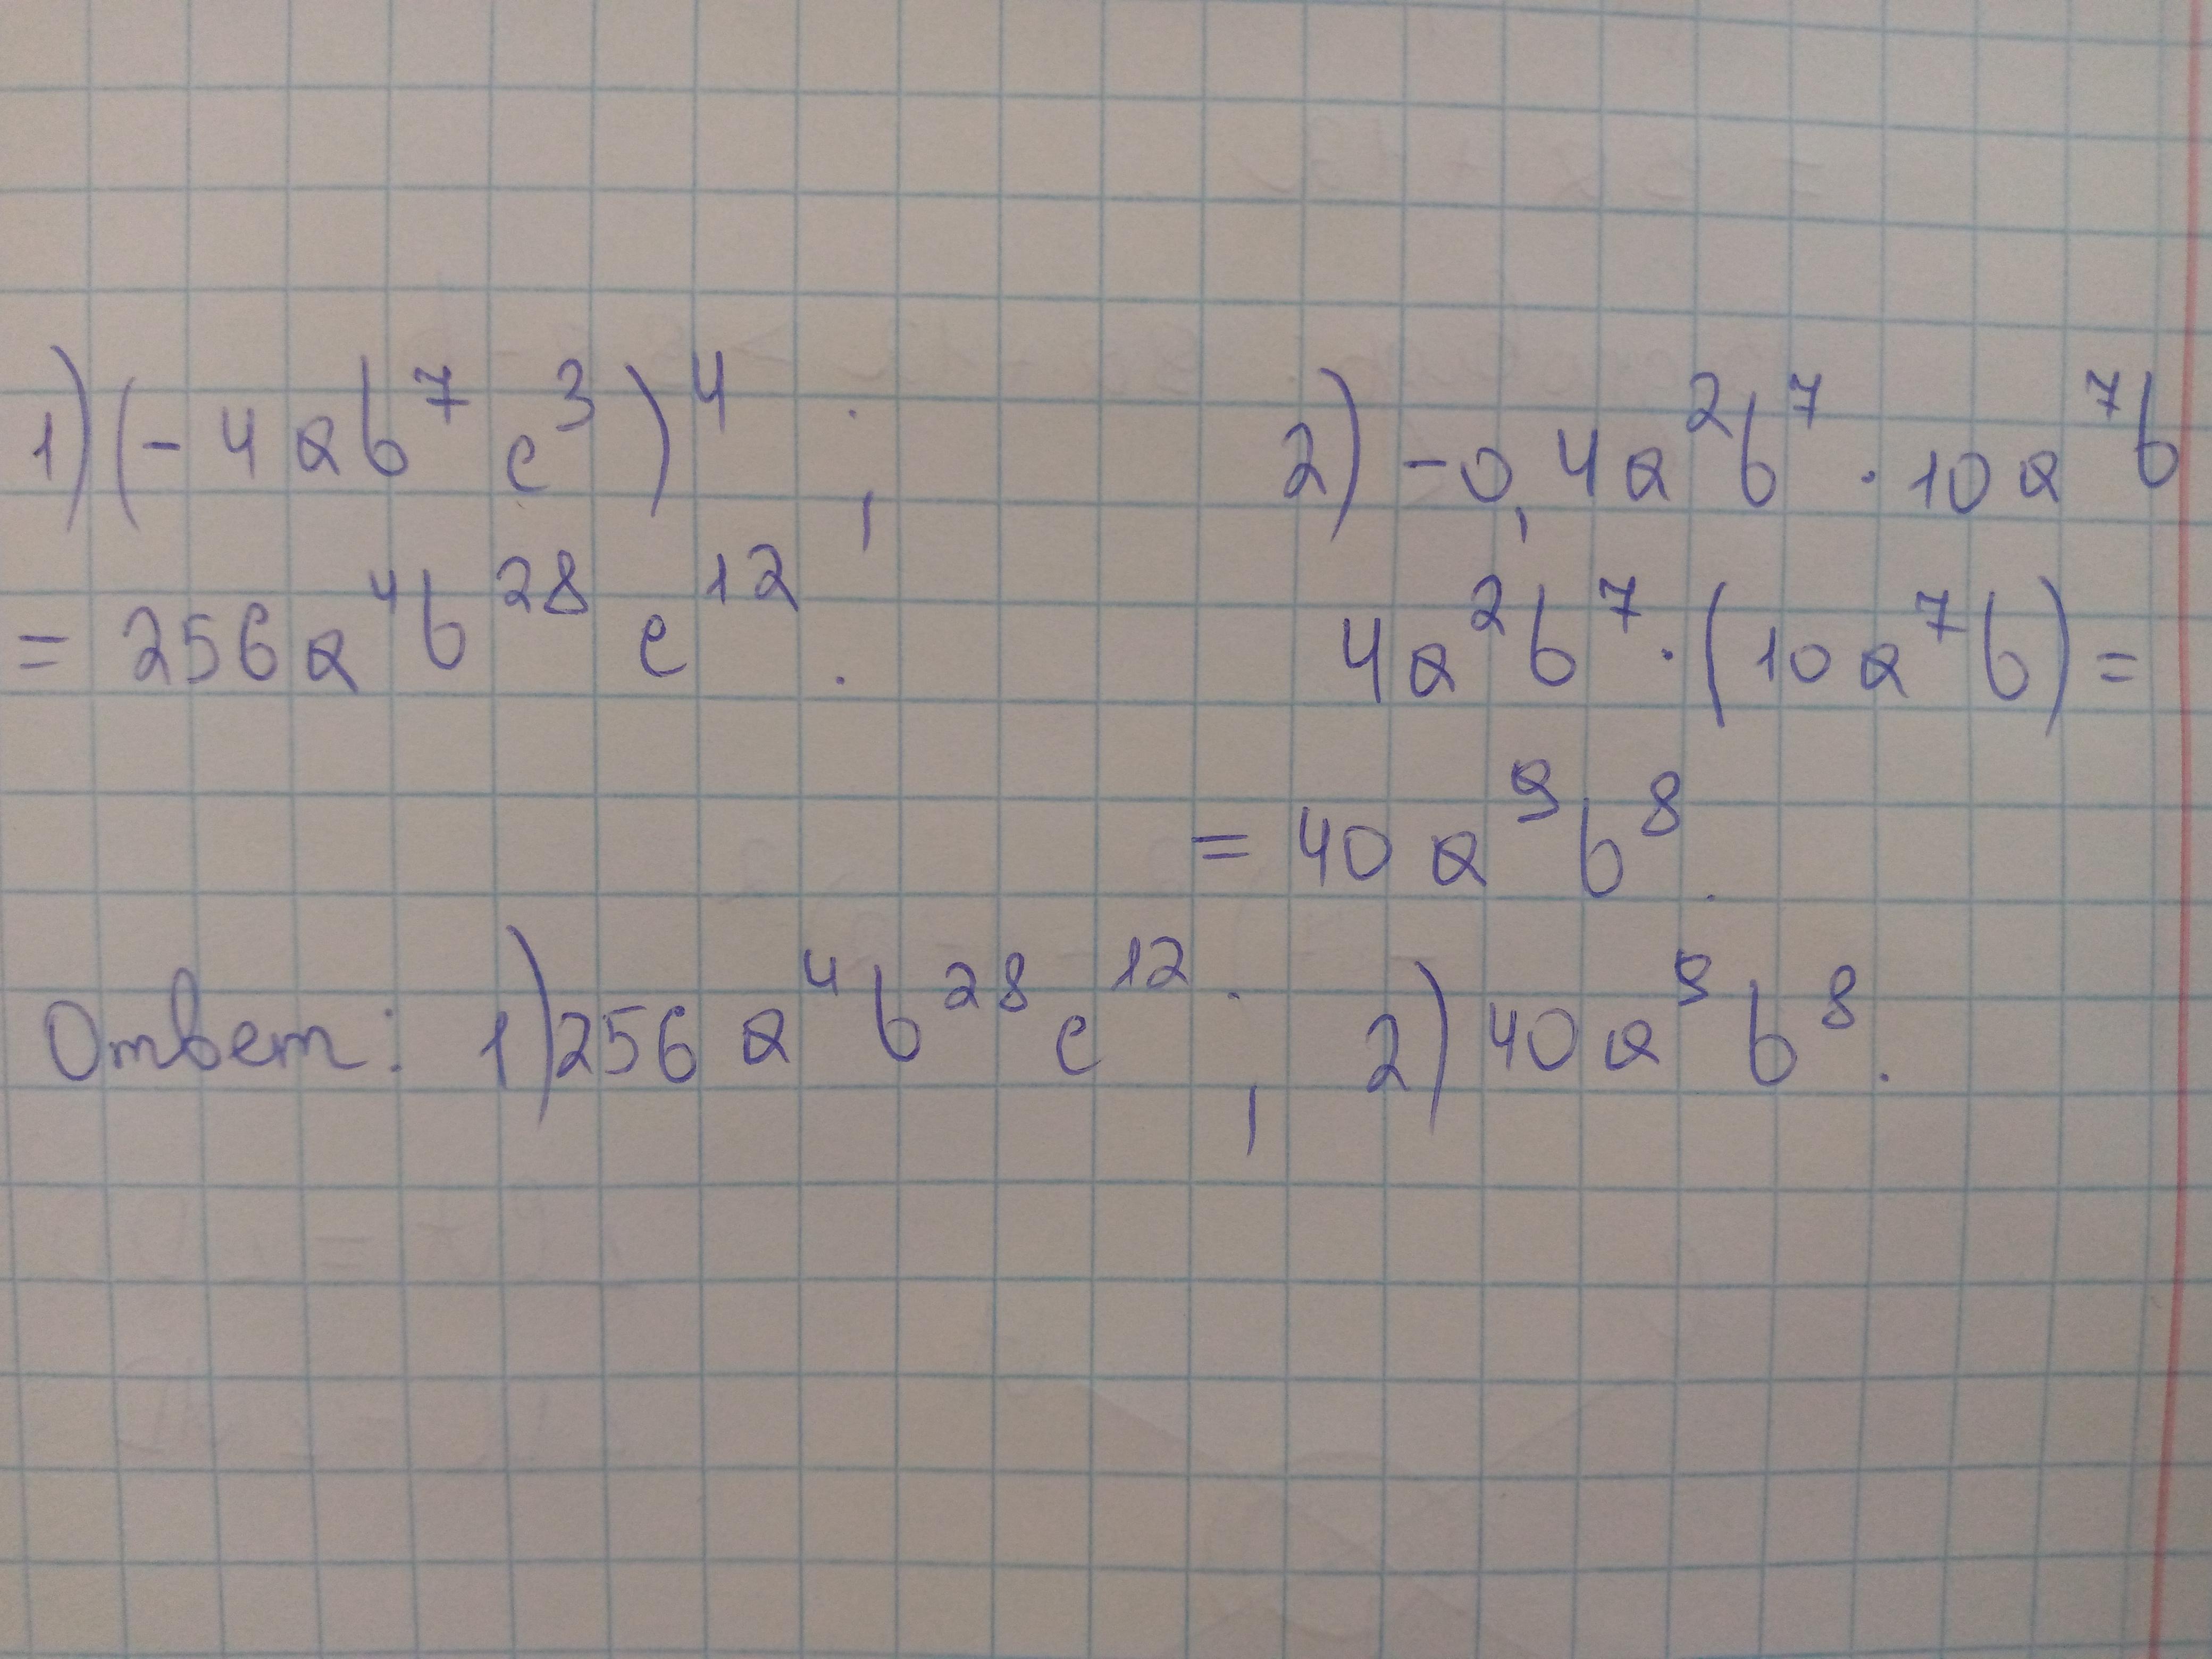 1) (-4ab⁷c³)⁴ ;
= 256a⁴b²⁸c¹² .
2) -0,4a²b⁷ · 10a⁷b
4a²b⁷ · (10a⁷b) =
= 40a⁹b⁸ .
Ответ: 1) 256a⁴b²⁸c¹² ; 2) 40a⁹b⁸ .